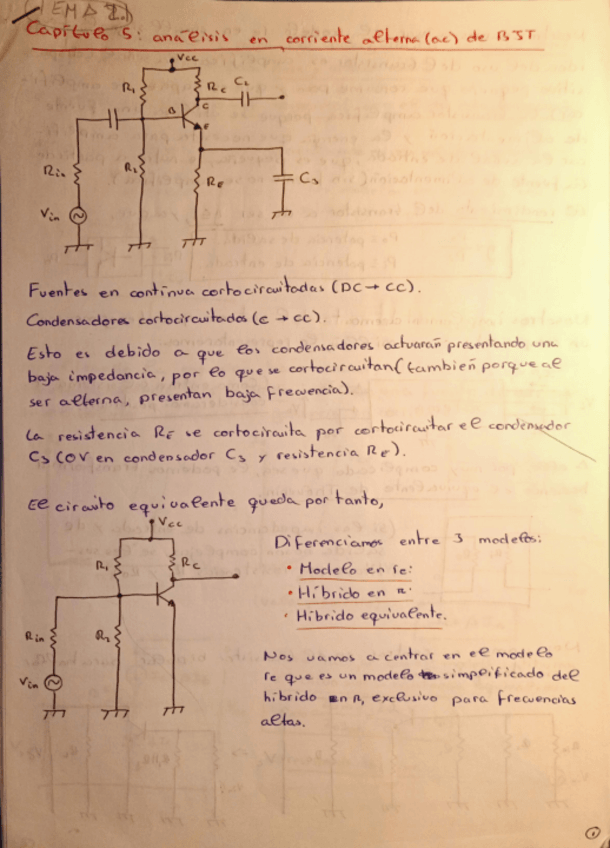 TEMA 2.)
Capítulo 5: análisis en corriente alterna (ac) de BJT
Vcc
R₁
Rc
C₂
B
C
E
Rin
R₂
RE
C₃
Vin
Fuentes en continua cortocircuitadas (DC → CC).
Condensadores cortocircuitados (C → CC).
Esto es debido a que los condensadores actuarán presentando una
baja impedancia, por lo que se cortocircuitan (también porque al
ser alterna, presentan baja frecuencia).
La resistencia RE se cortocircuita por cortocircuitar el condensador
C₃ (0V en condensador C₃ y resistencia RE).
El circuito equivalente queda por tanto,
Vcc
R₁
Rc
Rin
R₂
Vin
Diferenciamos entre 3 modelos:
• Modelo en re:
• Híbrido en π.
• Híbrido equivalente.
Nos vamos a centrar en el modelo
re que es un modelo simplificado del
híbrido en π, exclusivo para frecuencias
altas.
1